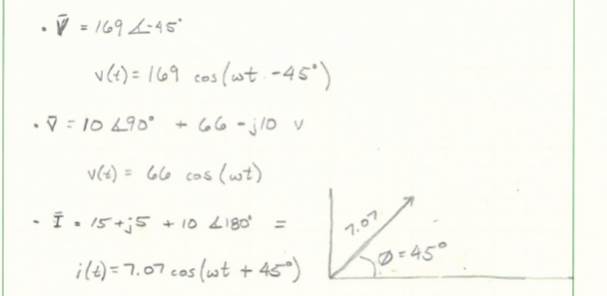 • V̄ = 169 ∠-45°
v(t) = 169 cos(ωt - 45°)
• v̄ = 10 ∠90° + 66 - j10 v
v(t) = 66 cos(ωt)
- Ī = 15 + j5 + 10 ∠180° =
i(t) = 7.07 cos(ωt + 45°)
7.07
Ø = 45°